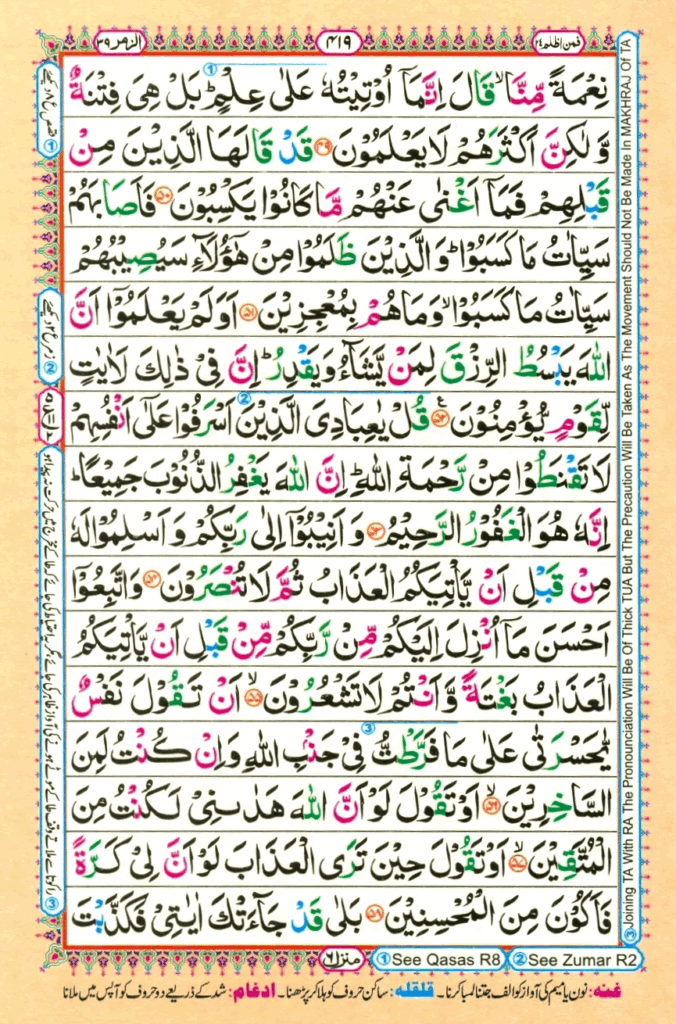 فمن اظلم ٢٤
٤١٩
الزمر ٣٩
نِعْمَةً مِّنَّا ۙ قَالَ اِنَّمَاۤ اُوْتِیْتُهٗ عَلٰی عِلْمٍ ؕ بَلْ هِیَ فِتْنَةٌ
وَّ لٰكِنَّ اَكْثَرَهُمْ لَا یَعْلَمُوْنَ ﴿۴۹﴾ قَدْ قَالَهَا الَّذِیْنَ مِنْ
قَبْلِهِمْ فَمَاۤ اَغْنٰی عَنْهُمْ مَّا كَانُوْا یَكْسِبُوْنَ ﴿۵۰﴾ فَاَصَابَهُمْ
سَیِّاٰتُ مَا كَسَبُوْا ؕ وَ الَّذِیْنَ ظَلَمُوْا مِنْ هٰۤؤُلَآءِ سَیُصِیْبُهُمْ
سَیِّاٰتُ مَا كَسَبُوْا ۙ وَمَا هُمْ بِمُعْجِزِیْنَ ﴿۵۱﴾ اَوَلَمْ یَعْلَمُوْۤا اَنَّ
اللّٰهَ یَبْسُطُ الرِّزْقَ لِمَنْ یَّشَآءُ وَیَقْدِرُ ؕ اِنَّ فِیْ ذٰلِكَ لَاٰیٰتٍ
لِّقَوْمٍ یُّؤْمِنُوْنَ ﴿۵۲﴾ قُلْ یٰعِبَادِیَ الَّذِیْنَ اَسْرَفُوْا عَلٰۤی اَنْفُسِهِمْ
لَا تَقْنَطُوْا مِنْ رَّحْمَةِ اللّٰهِ ؕ اِنَّ اللّٰهَ یَغْفِرُ الذُّنُوْبَ جَمِیْعًا ؕ
اِنَّهٗ هُوَ الْغَفُوْرُ الرَّحِیْمُ ﴿۵۳﴾ وَ اَنِیْبُوْۤا اِلٰی رَبِّكُمْ وَ اَسْلِمُوْا لَهٗ
مِنْ قَبْلِ اَنْ یَّاْتِیَكُمُ الْعَذَابُ ثُمَّ لَا تُنْصَرُوْنَ ﴿۵۴﴾ وَاتَّبِعُوْۤا
اَحْسَنَ مَاۤ اُنْزِلَ اِلَیْكُمْ مِّنْ رَّبِّكُمْ مِّنْ قَبْلِ اَنْ یَّاْتِیَكُمُ
الْعَذَابُ بَغْتَةً وَّ اَنْتُمْ لَا تَشْعُرُوْنَ ﴿۵۵﴾ ۙ اَنْ تَقُوْلَ نَفْسٌ
یّٰحَسْرَتٰی عَلٰی مَا فَرَّطْتُّ فِیْ جَنْۢبِ اللّٰهِ وَاِنْ كُنْتُ لَمِنَ
السّٰخِرِیْنَ ﴿۵۶﴾ ۙ اَوْ تَقُوْلَ لَوْ اَنَّ اللّٰهَ هَدٰىنِیْ لَكُنْتُ مِنَ
الْمُتَّقِیْنَ ﴿۵۷﴾ ۙ اَوْ تَقُوْلَ حِیْنَ تَرَی الْعَذَابَ لَوْ اَنَّ لِیْ كَرَّةً
فَاَكُوْنَ مِنَ الْمُحْسِنِیْنَ ﴿۵۸﴾ بَلٰی قَدْ جَآءَتْكَ اٰیٰتِیْ فَكَذَّبْتَ
③ Joining TA With RA The Pronounciation Will Be Of Thick TUA But The Precaution Will Be Taken As The Movement Should Not Be Made In MAKHRAJ Of TA
منزل ٦
① See Qasas R8
② See Zumar R2
غنه: نون یا میم کی آواز کو الف جتنا لمبا کرنا۔ قلقله: ساکن حروف کو ہلا کر پڑھنا۔ ادغام: شد کے ذریعے دو حروف کو آپس میں ملانا